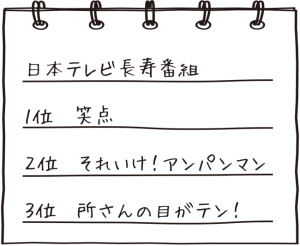 日本テレビ長寿番組
1位　笑点
2位　それいけ!アンパンマン
3位　所さんの目がテン!